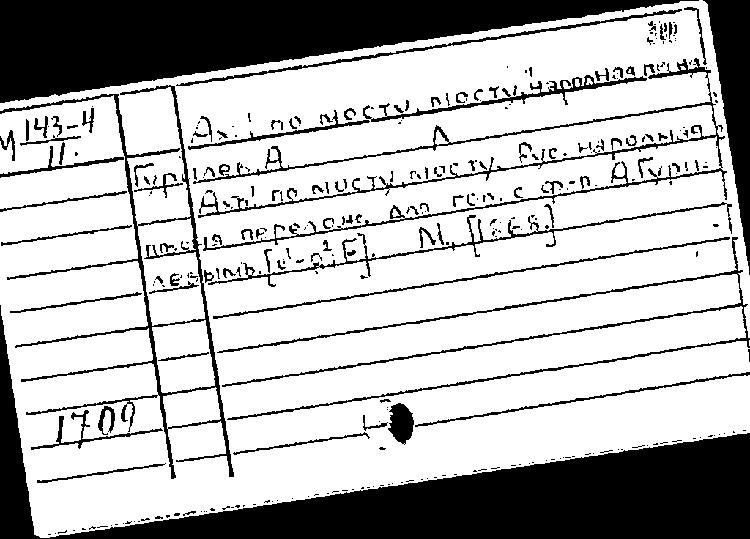 М 143-4
11.
Ах! по мосту, мосту," народная песня
Гурилев, А
Ахъ! по мосту, мосту. Рус. народная
песня перелож. для гол. с ф-п. А. Гури-
левымъ. М., [1868.]
1709